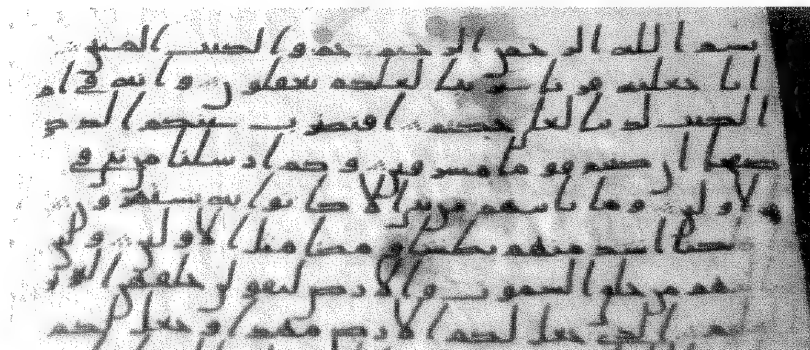 بسم الله الرحمن الرحيم حم والكتب المبين
انا جعلنه قرنا عربيا لعلكم تعقلون وانه في ام
الكتب لدينا لعلي حكيم افنضرب عنكم الذكر
صفحا ان كنتم قوما مسرفين وكم ارسلنا من نبي في
الاولين وما ياتيهم من نبي الا كانوا به يستهزون
فاهلكنا اشد منهم بطشا ومضى مثل الاولين ولين
سالتهم من خلق السموت والارض ليقولن خلقهن العزيز
العليم الذي جعل لكم الارض مهدا وجعل لكم